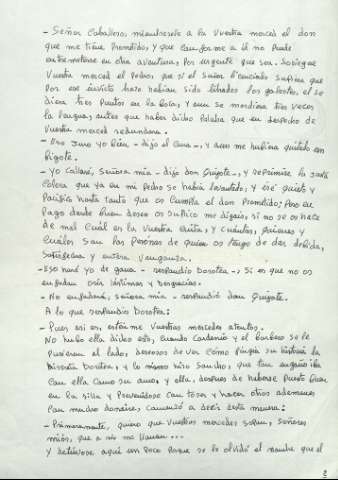 - Señor Caballero, miémbresele a la vuestra merced el don
que me tiene prometido, y que conforme a él no puede
entremeterse en otra aventura, por urgente que sea. Sosiegue
vuestra merced el pecho, que si el señor licenciado supiera que
por ese invicto brazo habían sido librados los galeotes, el se
diera tres puntos en la boca, y aun se mordiera tres veces
la lengua, antes que haber dicho palabra que en despecho de
vuestra merced redundara.
- Eso juro yo bien - dijo el cura -, y aun me hubiera quitado un
bigote.
- Yo callaré, señora mía - dijo don Quijote -, y reprimiré la justa
cólera que ya en mi pecho se había levantado, y iré quieto y
pacífico hasta tanto que os cumpla el don prometido; pero en
pago deste buen deseo os suplico me digáis, si no se os hace
de mal cuál es la vuestra cuita, y cuántas, quienes y
cuáles son las personas de quien os tengo de dar debida,
satisfecha y entera venganza.
- Eso haré yo de gana - respondió Dorotea -, si es que no os
enfadan oír lástimas y desgracias.
- No enfadará, señora mía - respondió don Quijote.
A lo que respondió Dorotea:
- Pues así es, estén me vuestras mercedes atentos.
No hubo ella dicho esto, cuando Cardenio y el barbero se le
pusieron al lado, deseosos de ver cómo fingía su historia la
discreta Dorotea, y lo mismo hizo Sancho, que tan engañado iba
con ella como su amo, y ella, después de haberse puesto bien
en la silla y prevenídose con toser y hacer otros ademanes
con mucho donaire, comenzó a decir esta manera:
- Primeramente, quiero que vuestras mercedes sepan, señores
míos, que a mí me llaman...
Y detúvose aquí un poco porque se le olvidó el nombre que el